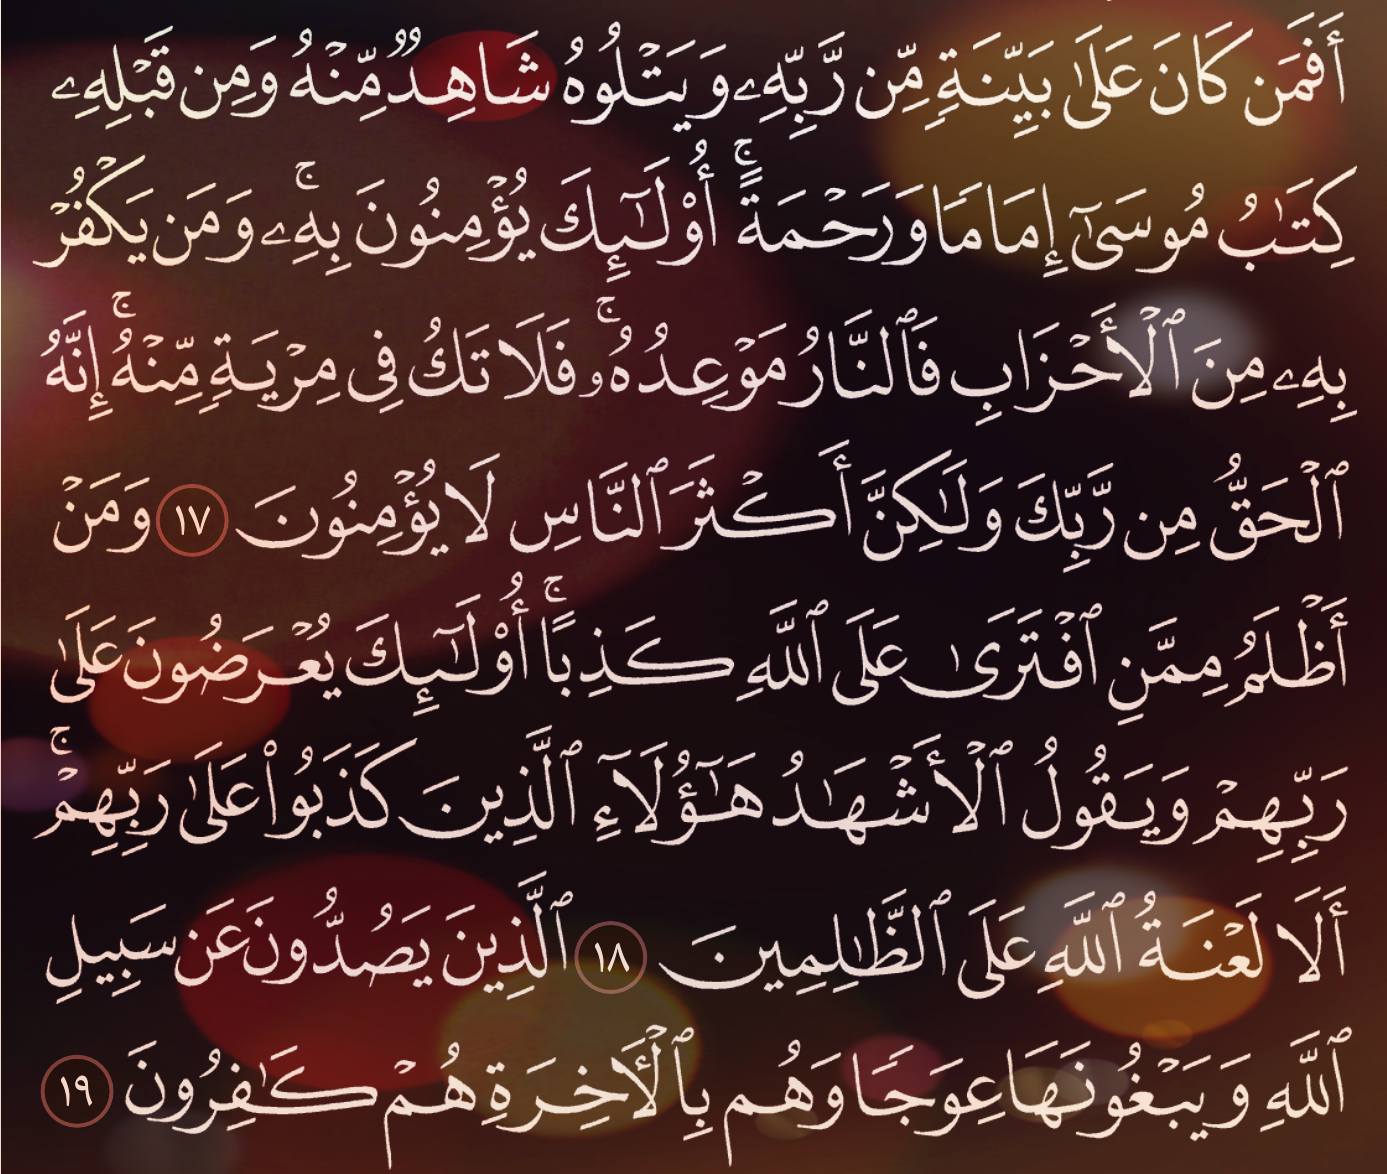 أَفَمَن كَانَ عَلَىٰ بَيِّنَةٍ مِّن رَّبِّهِۦ وَيَتْلُوهُ شَاهِدٌ مِّنْهُ وَمِن قَبْلِهِۦ
كِتَٰبُ مُوسَىٰٓ إِمَامًا وَرَحْمَةً ۚ أُو۟لَٰٓئِكَ يُؤْمِنُونَ بِهِۦ ۚ وَمَن يَكْفُرْ
بِهِۦ مِنَ ٱلْأَحْزَابِ فَٱلنَّارُ مَوْعِدُهُۥ ۚ فَلَا تَكُ فِى مِرْيَةٍ مِّنْهُ ۚ إِنَّهُ
ٱلْحَقُّ مِن رَّبِّكَ وَلَٰكِنَّ أَكْثَرَ ٱلنَّاسِ لَا يُؤْمِنُونَ ١٧ وَمَنْ
أَظْلَمُ مِمَّنِ ٱفْتَرَىٰ عَلَى ٱللَّهِ كَذِبًا ۚ أُو۟لَٰٓئِكَ يُعْرَضُونَ عَلَىٰ
رَبِّهِمْ وَيَقُولُ ٱلْأَشْهَٰدُ هَٰٓؤُلَآءِ ٱلَّذِينَ كَذَبُوا۟ عَلَىٰ رَبِّهِمْ ۚ
أَلَا لَعْنَةُ ٱللَّهِ عَلَى ٱلظَّٰلِمِينَ ١٨ ٱلَّذِينَ يَصُدُّونَ عَن سَبِيلِ
ٱللَّهِ وَيَبْغُونَهَا عِوَجًا وَهُم بِٱلْأَخِرَةِ هُمْ كَٰفِرُونَ ١٩